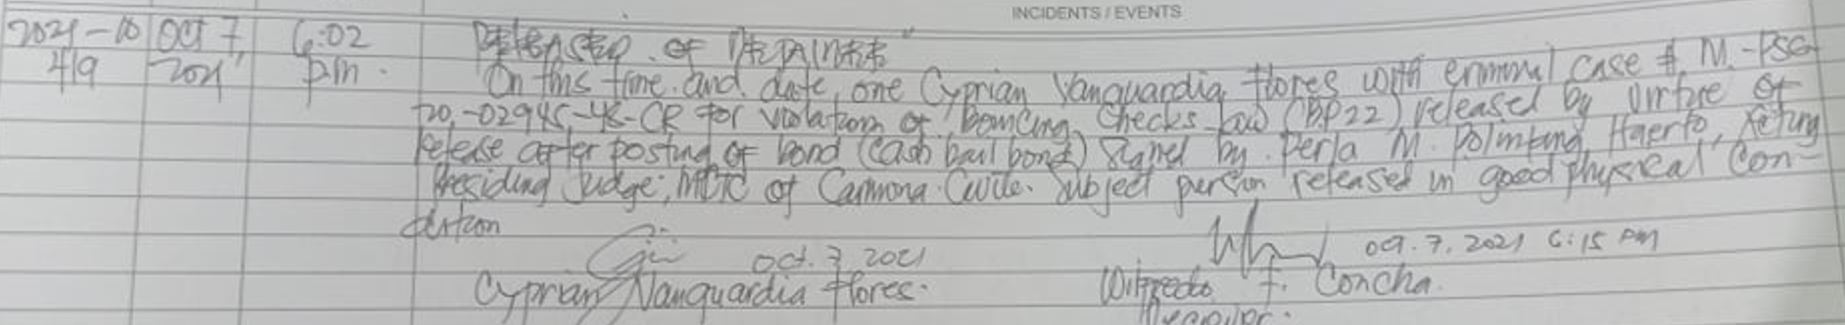 INCIDENTS / EVENTS
2021-10 Oct 7, 6:02
419 2021 pm.
Released of Detainee"
On this time and date, one Cyprian Vanguardia Flores with criminal case # M.-PSG-
20,-02945,-48-CR for violation of bouncing checks law (BP22) released by virtue of
release after posting of bond (cash bail bond) signed by Perla M. Haerto, Acting
Presiding Judge, of Carmona Cavite. Subject person released in good physical con-
dition
Oct. 7 2021 Oct. 7. 2021 6:15 PM
Cyprian Vanguardia Flores. Wilfredo F. Concha.